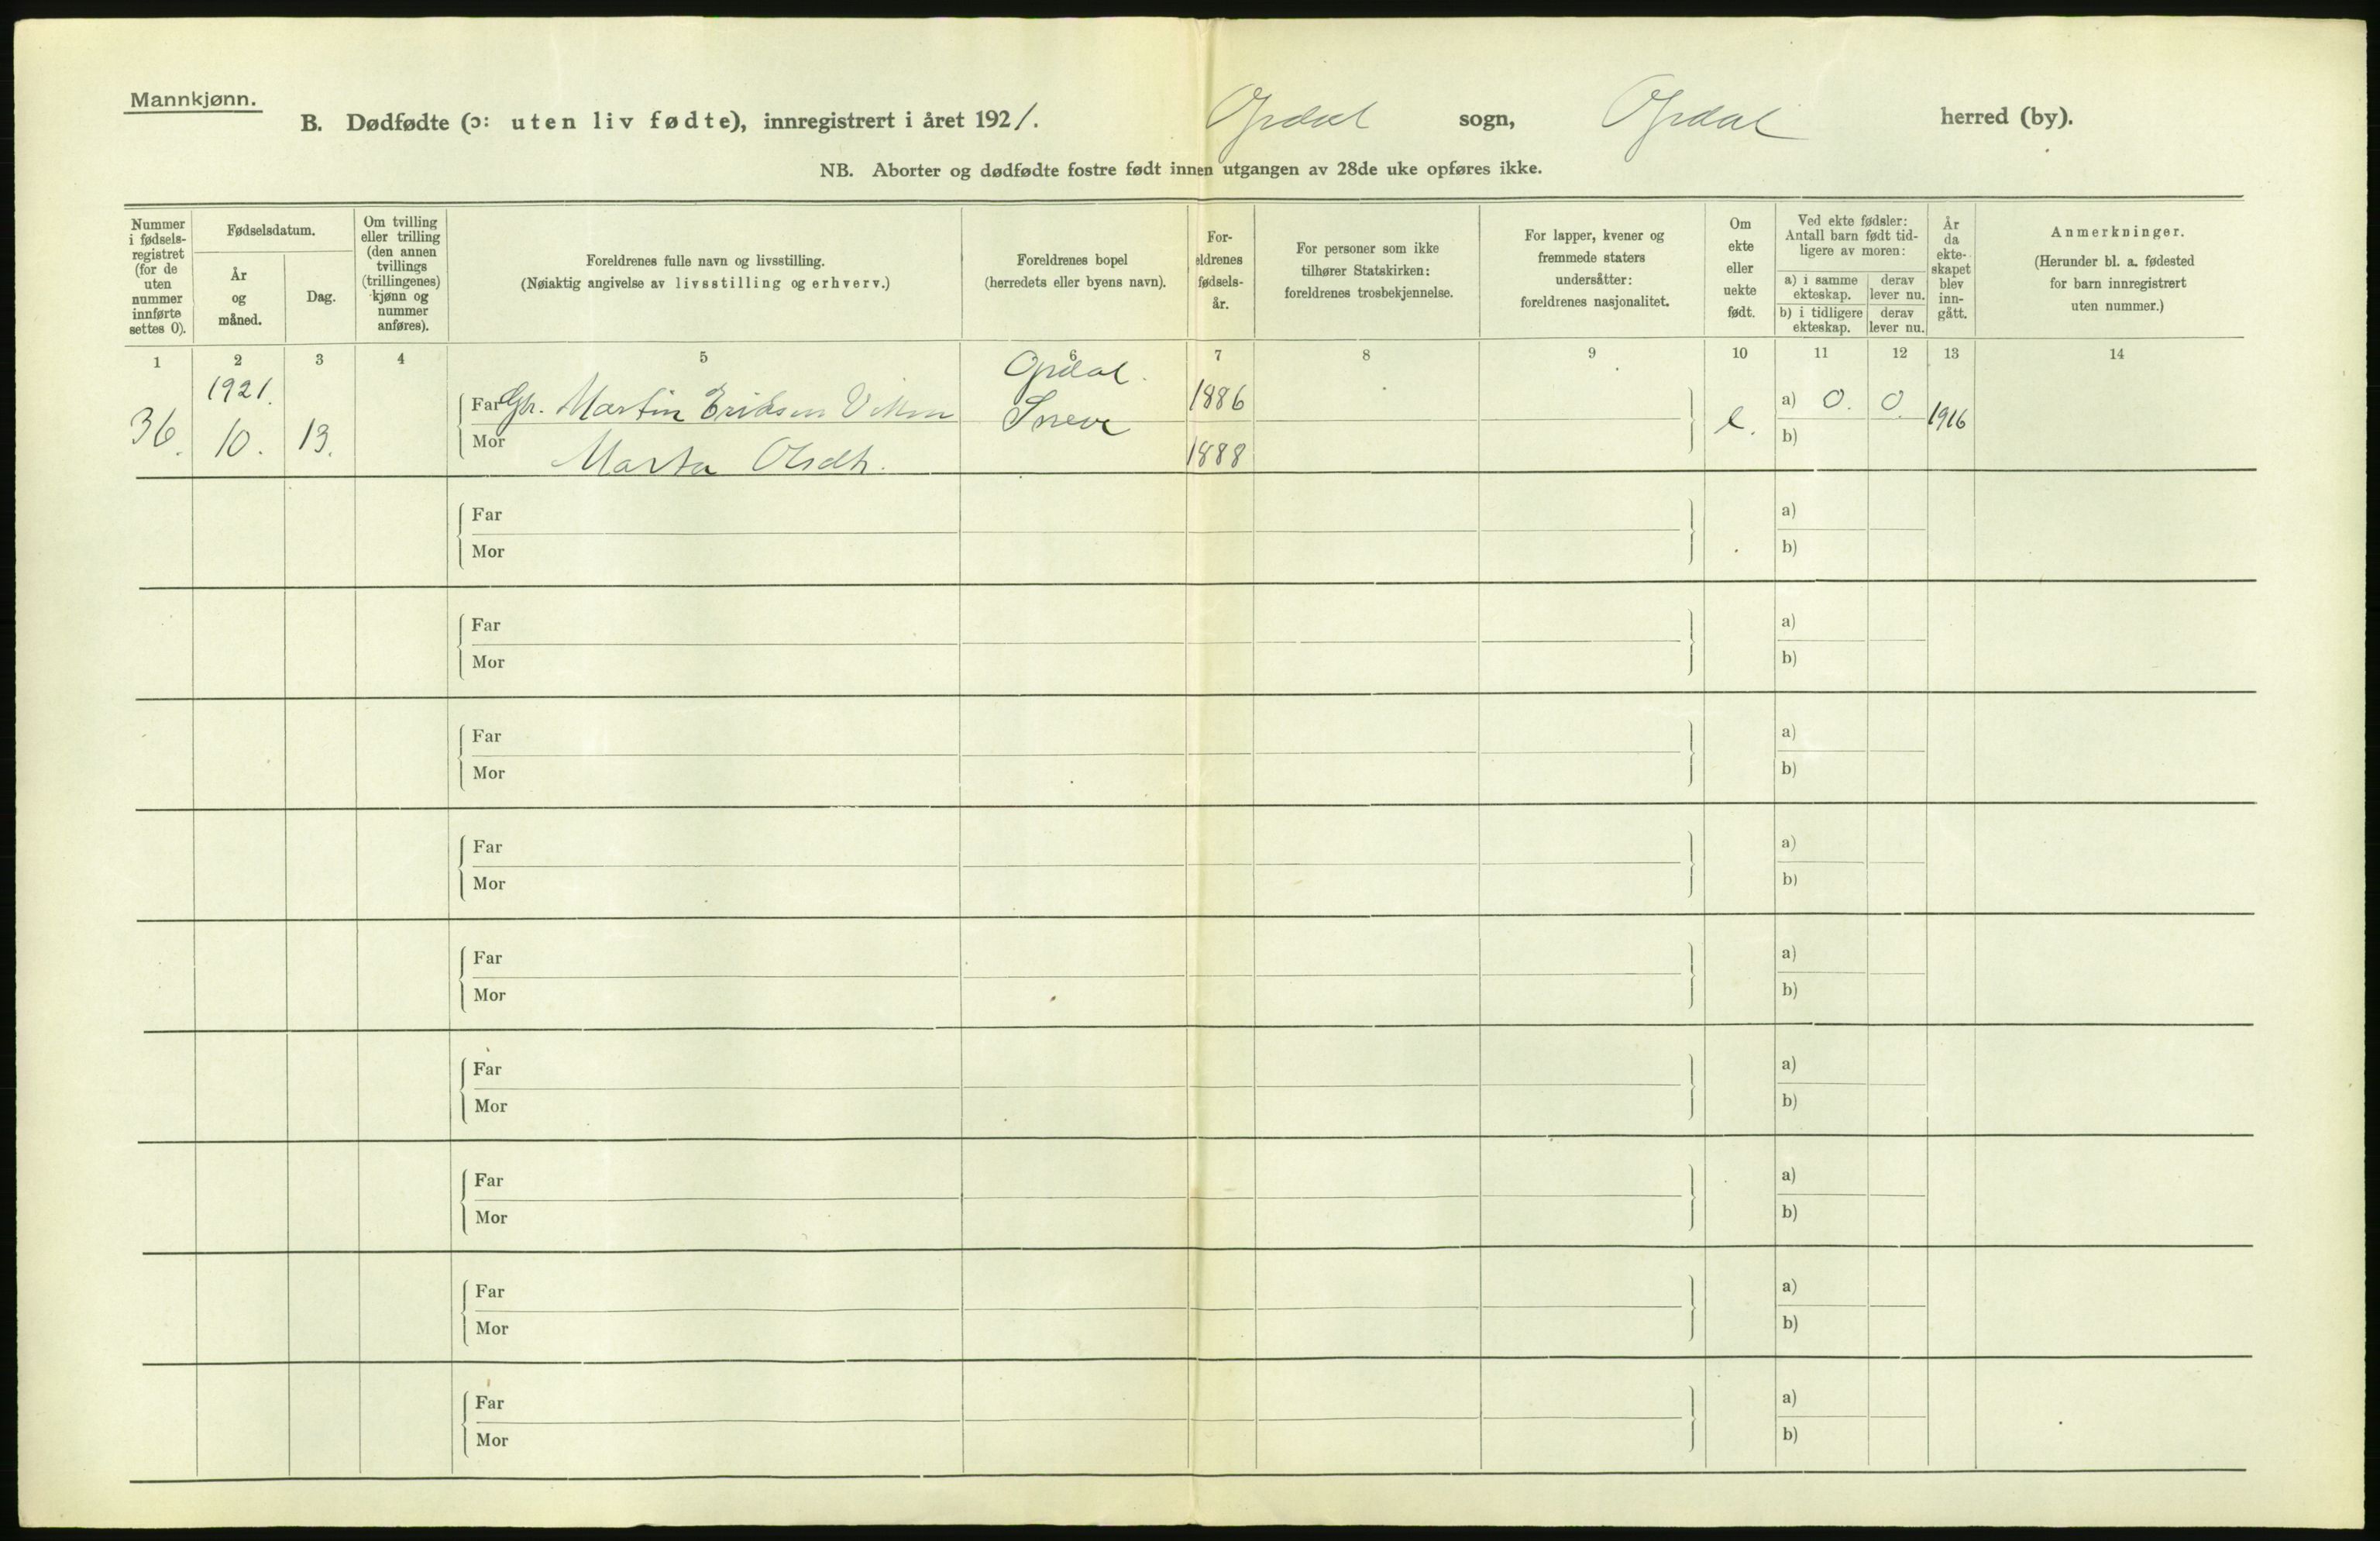 Mannkjønn.
B. Dødfødte (ɔ: uten liv fødte), innregistrert i året 1921. Opdal sogn, Opdal herred (by).
NB. Aborter og dødfødte fostre født innen utgangen av 28de uke opføres ikke.
Nummer i fødsels-registret (for de uten nummer innførte settes 0).
Fødselsdatum.
År og måned.
Dag.
Om tvilling eller trilling (den annen tvillings (trillingenes) kjønn og nummer anføres).
Foreldrenes fulle navn og livsstilling.
(Nøiaktig angivelse av livsstilling og erhverv.)
Foreldrenes bopel
(herredets eller byens navn).
For-eldrenes fødsels-år.
For personer som ikke tilhører Statskirken: foreldrenes trosbekjennelse.
For lapper, kvener og fremmede staters undersåtter: foreldrenes nasjonalitet.
Om ekte eller uekte født.
Ved ekte fødsler: Antall barn født tid-ligere av moren:
a) i samme ekteskap. derav lever nu.
b) i tidligere ekteskap. derav lever nu.
År da ekte-skapet blev inn-gått.
Anmerkninger.
(Herunder bl. a. fødested for barn innregistrert uten nummer.)
1 2 3 4 5 6 7 8 9 10 11 12 13 14
1921. Opdal.
Far Gbr. Martin Eriksen Viken 1886 a) 0. 0
36. 10. 13. Sneve e. 1916
Mor Marta Olsdtr. 1888 b)
Far a)
Mor b)
Far a)
Mor b)
Far a)
Mor b)
Far a)
Mor b)
Far a)
Mor b)
Far a)
Mor b)
Far a)
Mor b)
Far a)
Mor b)
Far a)
Mor b)